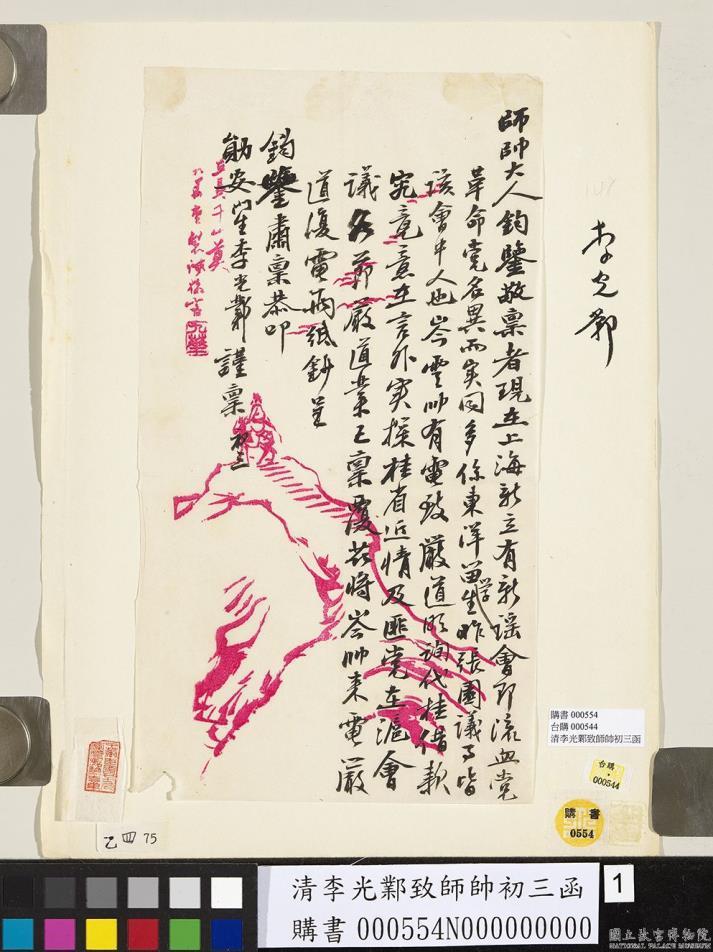 師帥大人鈞鑒敬稟者現在上海新立有新瑶會即流血党
革命党名異而实同多係東洋畄学生昨張園議事皆
該會中人也岑雲帅有電致嚴道明詢代桂借款
究竟意在言外实探桂省近情及匪党在滬會
議各節嚴道業已稟覆茲將岑帅来電嚴
道復電兩紙鈔呈
鈞鑒肅稟恭叩
勛安崖李光鄴 謹稟 初三
李光鄴
購書 000554
台購 000544
清李光鄴致師帥初三函
台購
000544
購書
0554
乙四 75
清李光鄴致師帥初三函
購書 000554N000000000
1
國立故宮博物院
NATIONAL PALACE MUSEUM